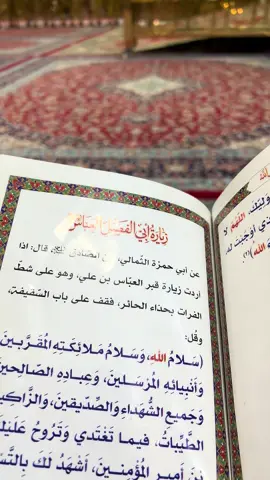 زيارة أبي الفضل العباس
عن أبي حمزة الثمالي، عن الصادق قال: اذا
أردت زيارة قبر العبّاس بن علي، وهو على شطّ
الفرات بحذاء الحائر، فقف على باب السّقيفة،
وقُل:
(سَلامُ اللهِ، وَسَلامُ مَلائِكَتِهِ المُقَرَّبينَ
وَأنبِيائِهِ المُرسَلينَ، وَعِبادِهِ الصّالحينَ
وَجَميعِ الشُّهَداءِ وَالصِّدّيقينَ، وَالزّاكِ
الطَّيِّباتُ، فيما تَغتَدي وَتَروحُ عَلَيكَ
بنَ أميرِ المُؤمِنينَ، أشهَدُ لَكَ بِالتَّس